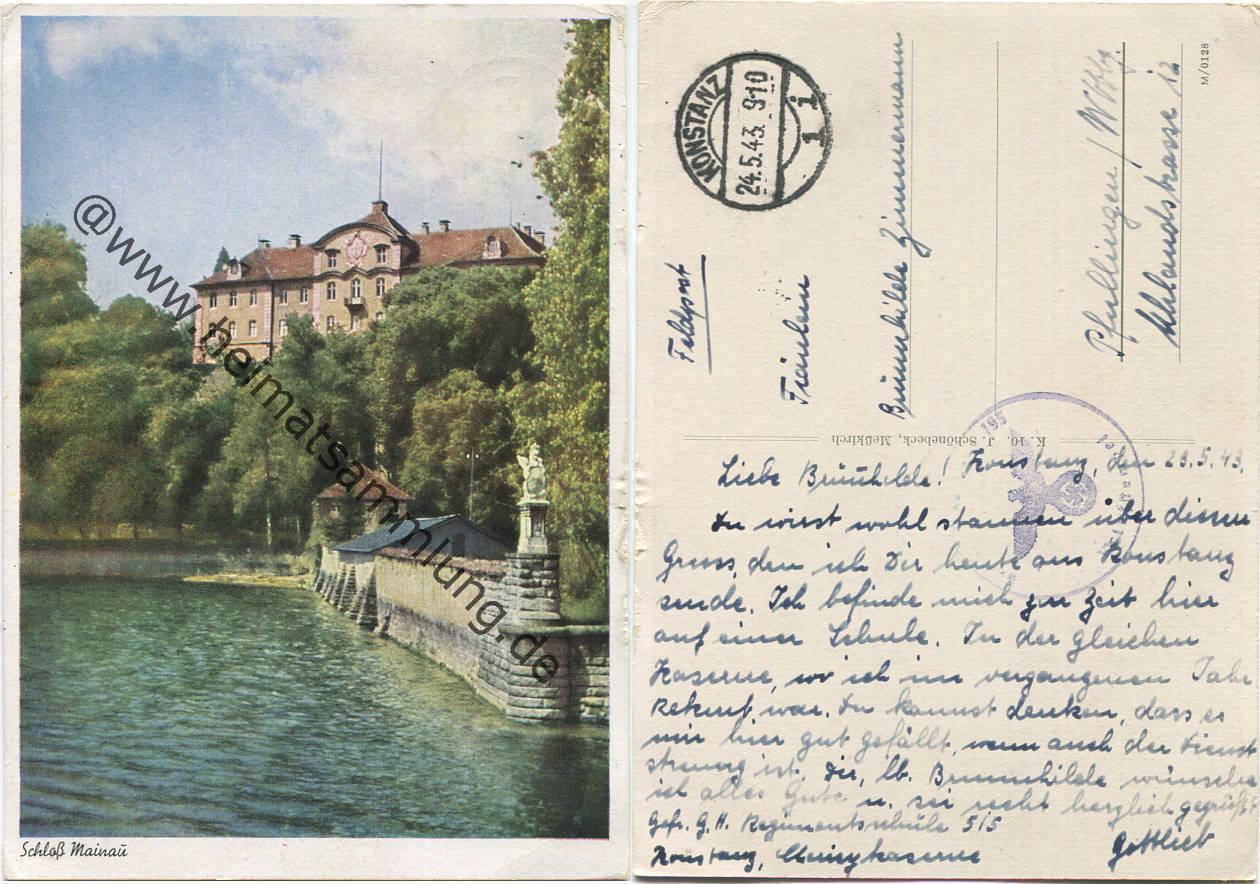 @www.heimatsammlung.de
Schloß Mainau
M/0128
KONSTANZ
24.5.43. 9-10
1 i
Feldpost
Fräulein
Brünnhilde Zimmermann
Pfullingen / Wttbg.
Uhlandstrasse 12
K. 10. J. Schönebeck, Meßkirch
Konstanz, den 23.5.43.
Liebe Brünhilde!
Du wirst wohl staunen über diesen
Gruss, den ich Dir heute aus Konstanz
sende. Ich befinde mich zur Zeit hier
auf einer Schule. In der gleichen
Kaserne, wo ich im vergangenen Jahr
Rekrut war. Du kannst denken, dass es
mir hier gut gefällt, wenn auch der Dienst
streng ist. Dir, lb. Brunnhilde wünsche
ich alles Gute u. sei recht herzlich gegrüßt
Gottlieb
Gefr. G. H. Regimentsschule 515
Konstanz, Cherisykaserne